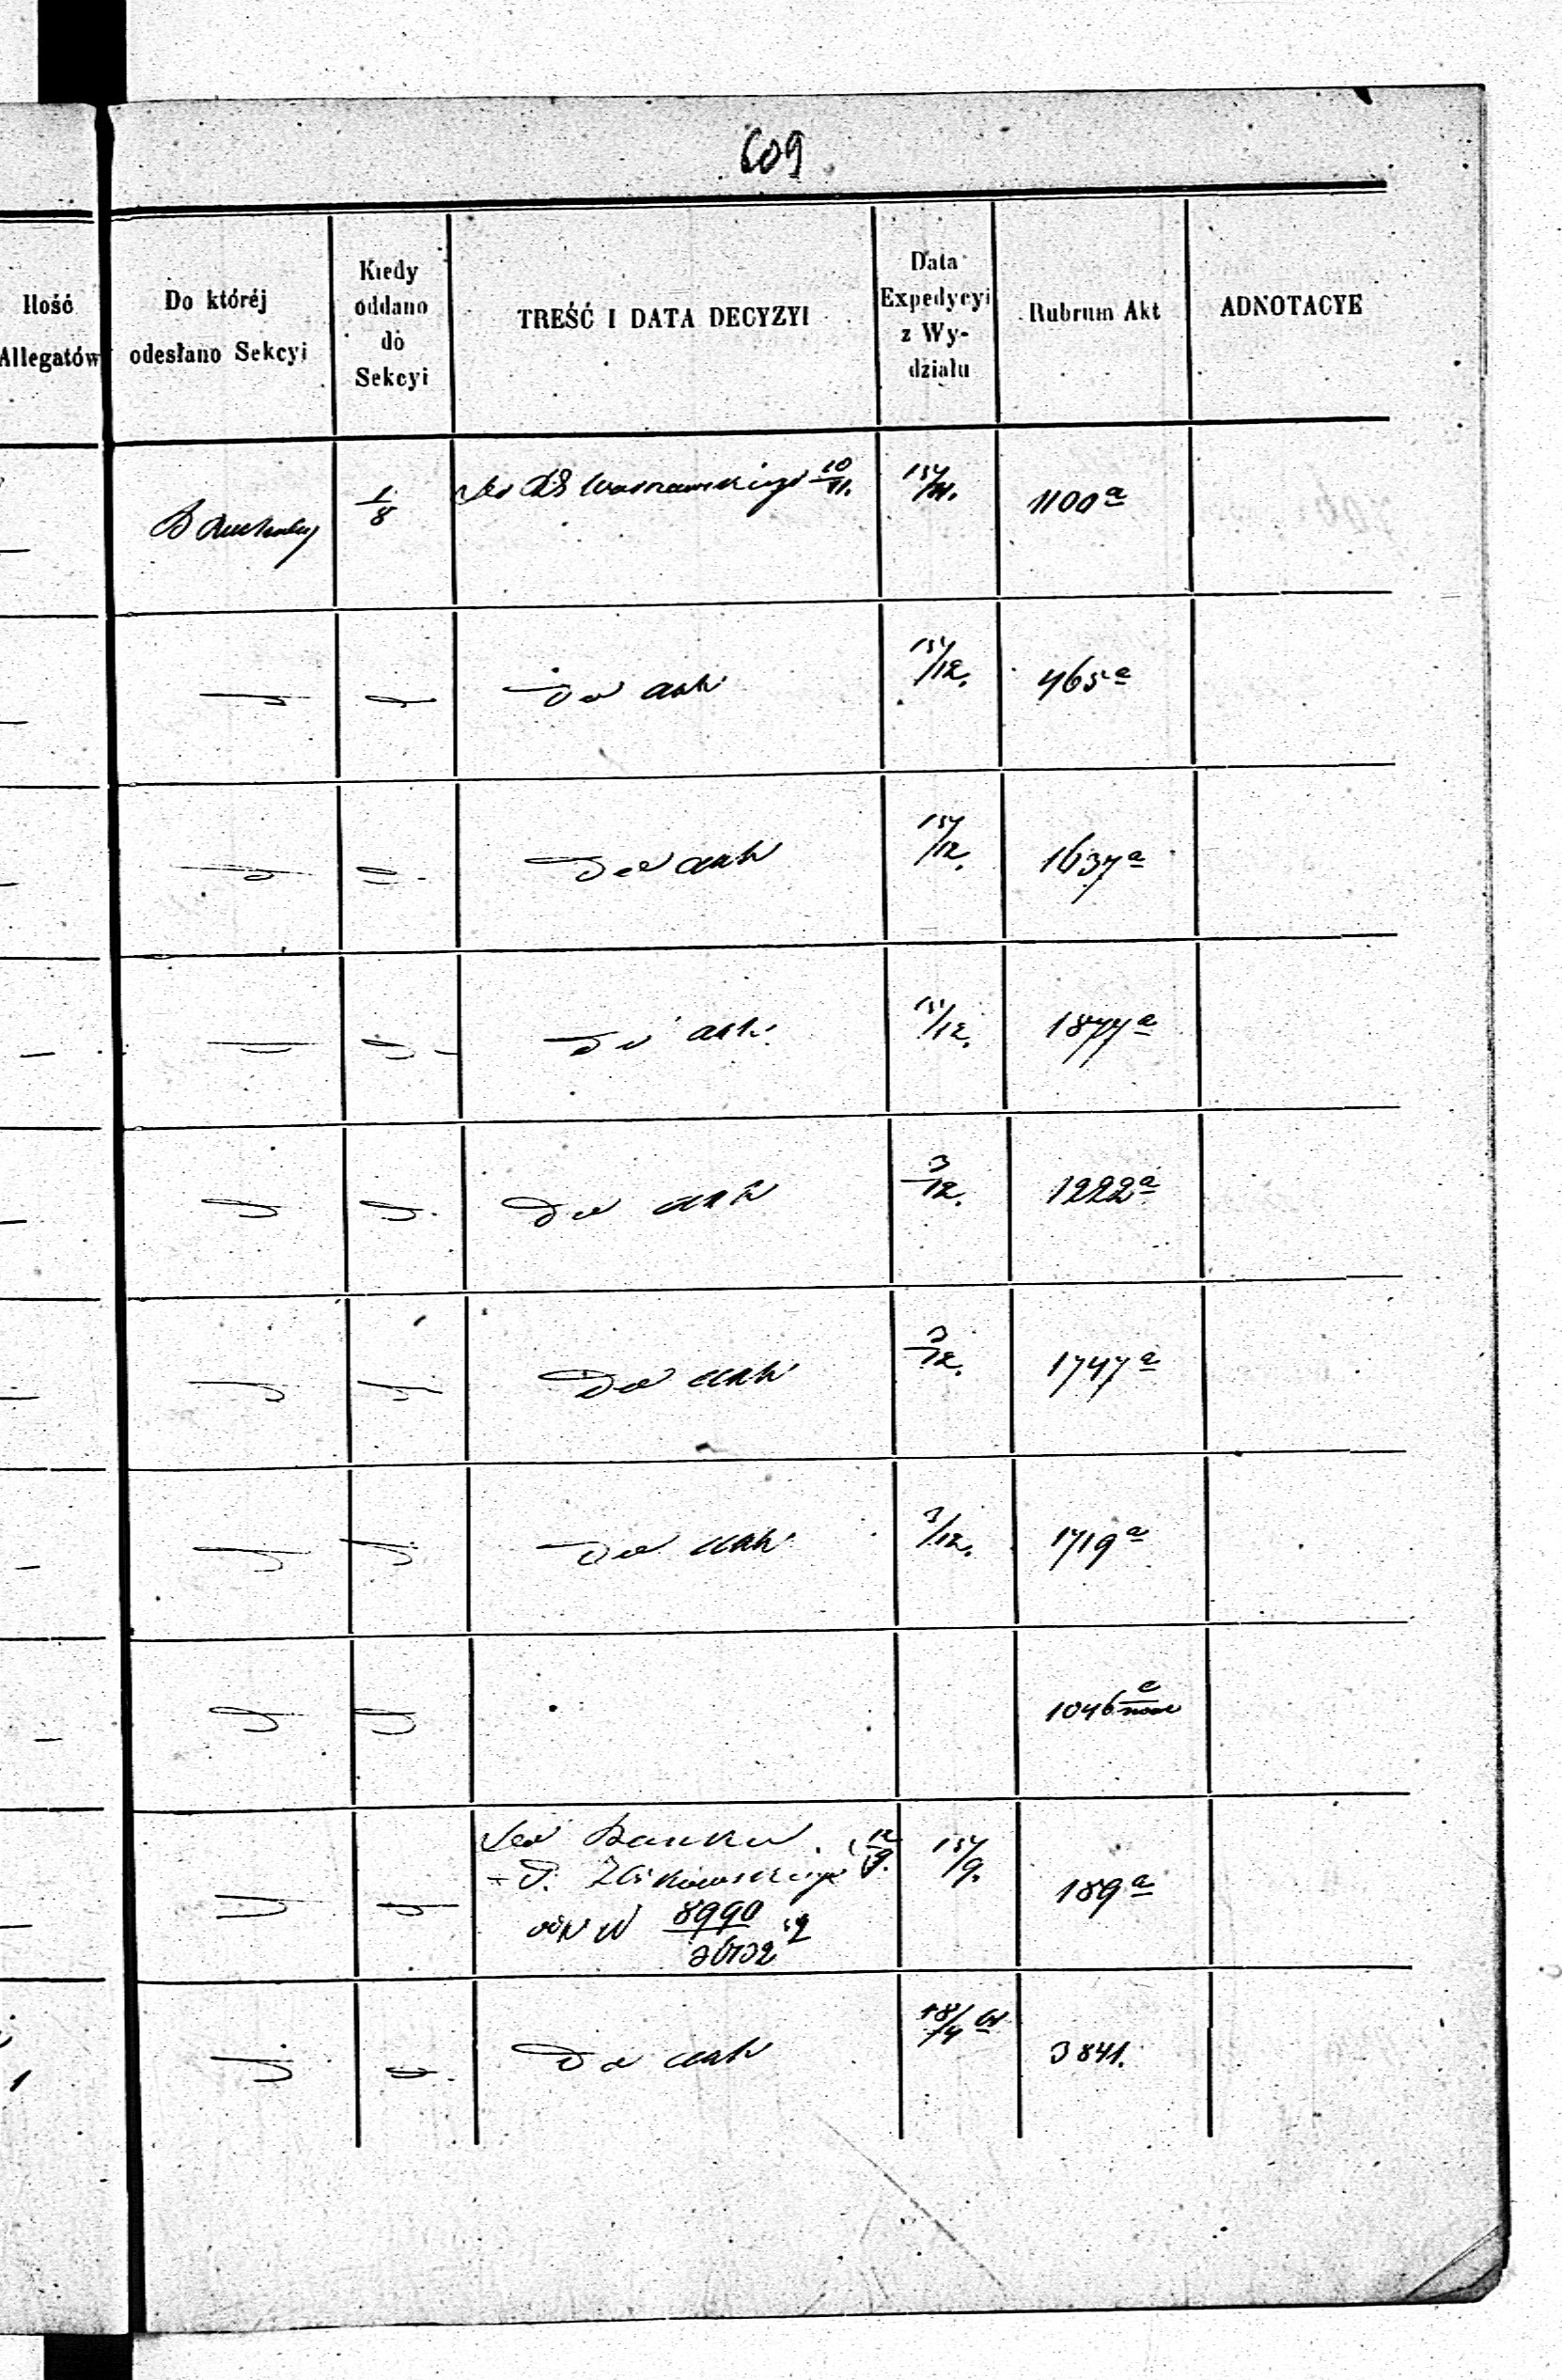 609
Ilość
Allegatów
Do któréj
odesłano Sekcyi
Kiedy
oddano
do
Sekcyi
TREŚĆ I DATA DECYZYI
Data
Expedycyi
z Wy-
działu
Rubrum Akt
ADNOTACYE
1/8 Warszawskiego 10/11. 15/11. 1100 a
Do akt 15/12. 465 a
Do akt 15/12. 1637 a
Do akt 15/12. 1877 a
Do akt 3/12. 1222 a
Do akt 3/12. 1747 a
Do akt 3/12. 1719 a
1046
Do Banku 12/9. 15/9. 189 a
8990
Do akt 18/4 3841.
1